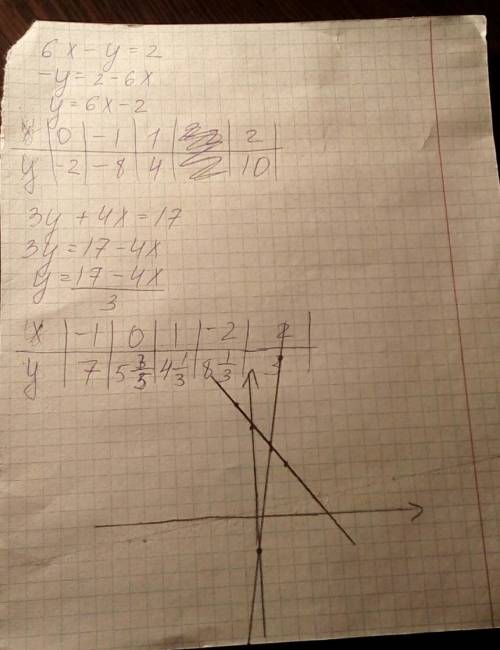 6x - y = 2
-y = 2 - 6x
y = 6x - 2
x | 0 | -1 | 1 | | 2 |
y | -2 | -8 | 4 | | 10 |
3y + 4x = 17
3y = 17 - 4x
y = 17 - 4x
3
x | -1 | 0 | 1 | -2 | 2 |
y | 7 | | 4 1/3 | 8 1/3 | 3